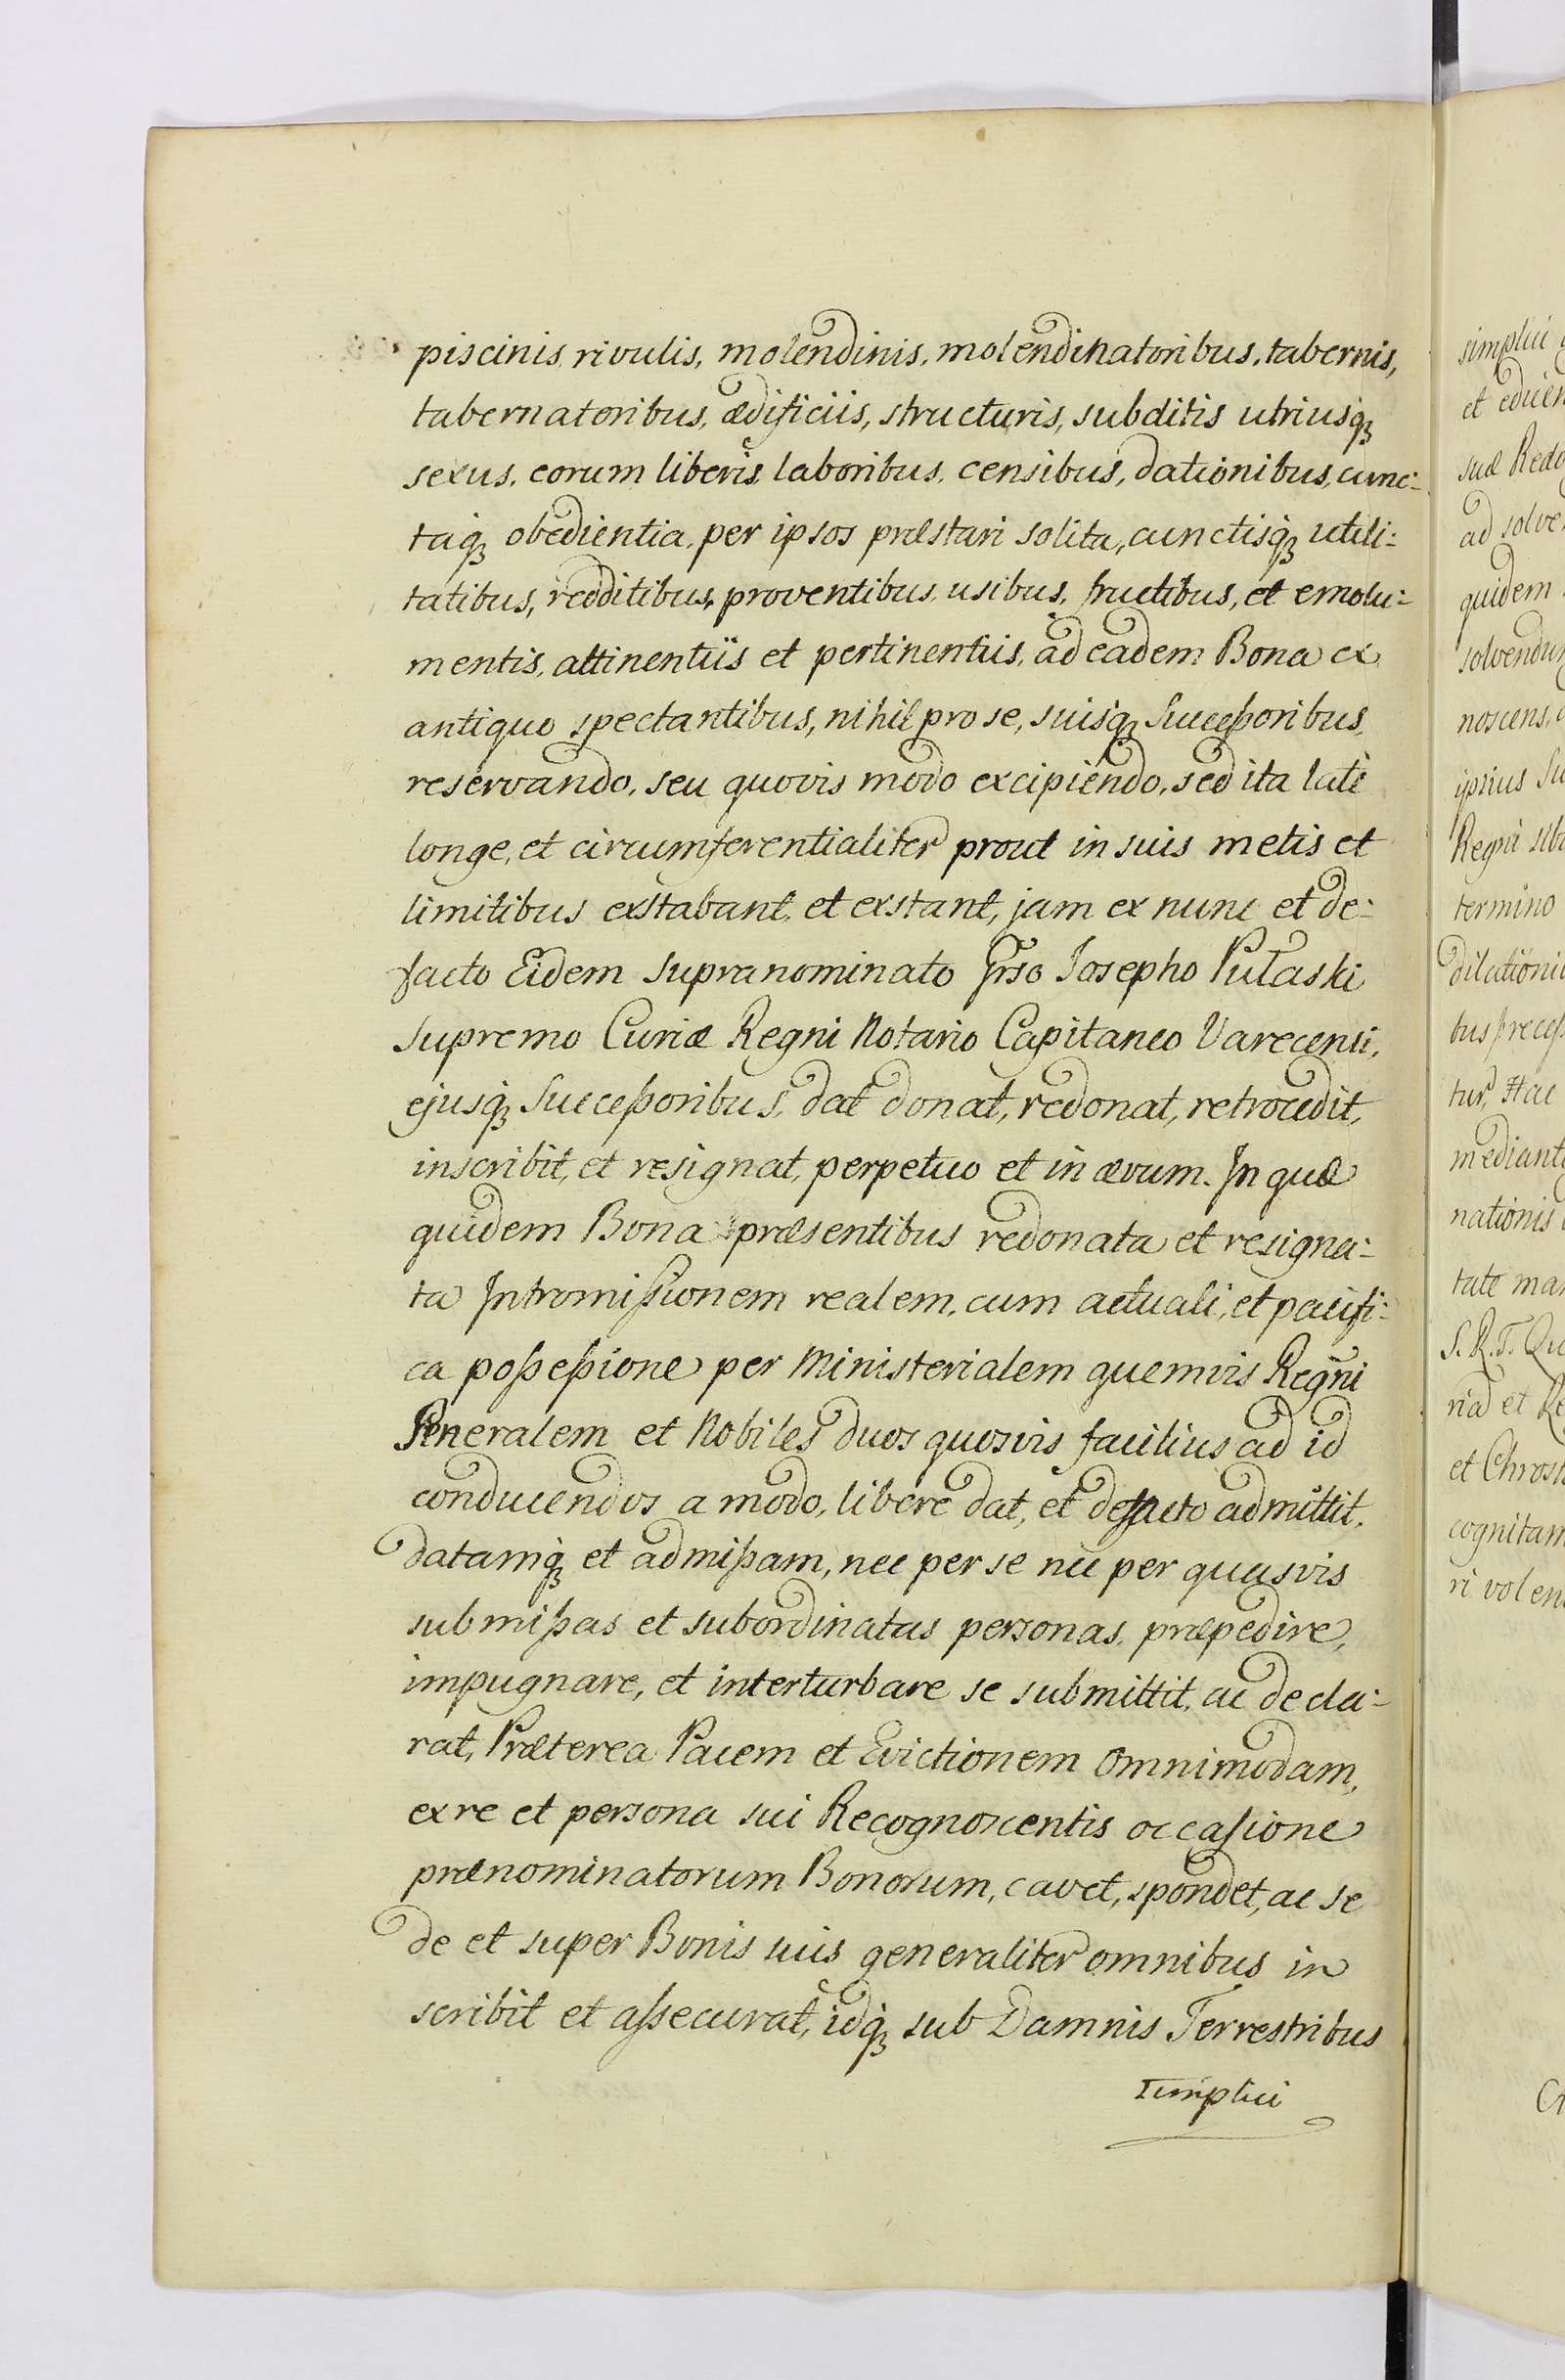 piscinis, rivulis, molendinis, molendinatoribus, tabernis,
tabernatoribus, ædificiis, structuris, subditis utriusq́
sexus, eorum liberis, laboribus, censibus, dationibus, cunc:
taq́ obedientia, per ipsos præstari solita, cunctisq́ utili:
tatibus, redditibus, proventibus, usibus, fructibus, et emolu:
mentis, attinentiis et pertinentiis, ad eadem Bona ex
antiquo spectantibus, nihil pro se, suisq́ Succeßoribus
reservando, seu quovis modo excipiendo, sed ita latè
longe, et circumferentialiter prout in suis metis et
limitibus exstabant, et exstant, jam ex nunc et de:
facto Eidem supranominato Gr̃so Josepho Pułaski
Supremo Curiæ Regni Notario Capitaneo Varecensi,
ejusq́ Succeßoribus, dat donat, redonat, retrocedit,
inscribit, et resignat, perpetuo et in ævum. In quæ
quidem Bona præsentibus redonata et resigna:
ta Intromißionem realem, cum actuali, et pacifi:
ca poßeßione per Ministerialem quemvis Regñi
Generalem et Nobiles duos quosvis facilius ad id
conducendos a modo, libere dat, et defacto admittit,
datamq́ et admißam, nec per se nec per quasvis
submißas et subordinatas personas, præpedire,
impugnare, et interturbare se submittit, ac decla:
rat, Præterea Pacem et Evictionem omnimodam,
ex re et persona sui Recognoscentis occasione
prænominatorum Bonorum, cavet, spondet, ac se
de et super Bonis suis generaliter omnibus in
scribit et assecurat, idq́ sub Damnis Terrestribus
simplici
simplici
suæ
ad
quidem
noscens,
ipsius
Regni
termino
tur, Hac
nationis
tate
S. R. T.
et
cognitam